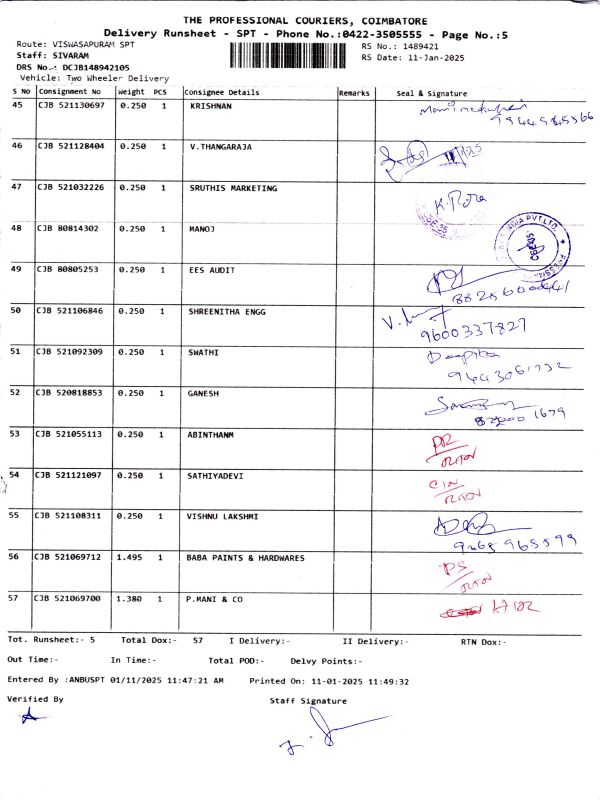 THE PROFESSIONAL COURIERS, COIMBATORE
Delivery Runsheet - SPT - Phone No.:0422-3505555 - Page No.:5
Route: VISWASAPURAM SPT RS No.: 1489421
Staff: SIVARAM RS Date: 11-Jan-2025
DRS No.- DCJB148942105
Vehicle: Two Wheeler Delivery
S No Consignment No Weight PCS Consignee Details Remarks Seal & Signature
45 CJB 521130697 0.250 1 KRISHNAN
46 CJB 521128404 0.250 1 V.THANGARAJA
47 CJB 521032226 0.250 1 SRUTHIS MARKETING
48 CJB 80814302 0.250 1 MANOJ
49 CJB 80805253 0.250 1 EES AUDIT
50 CJB 521106846 0.250 1 SHREENITHA ENGG
9600337827
51 CJB 521092309 0.250 1 SWATHI
52 CJB 520818853 0.250 1 GANESH
53 CJB 521055113 0.250 1 ABINTHANM
54 CJB 521121097 0.250 1 SATHIYADEVI
55 CJB 521108311 0.250 1 VISHNU LAKSHMI
56 CJB 521069712 1.495 1 BABA PAINTS & HARDWARES
57 CJB 521069700 1.380 1 P.MANI & CO
Tot. Runsheet:- 5 Total Dox:- 57 I Delivery:- II Delivery:- RTN Dox:-
Out Time:- In Time:- Total POD:- Delvy Points:-
Entered By :ANBUSPT 01/11/2025 11:47:21 AM Printed On: 11-01-2025 11:49:32
Verified By Staff Signature